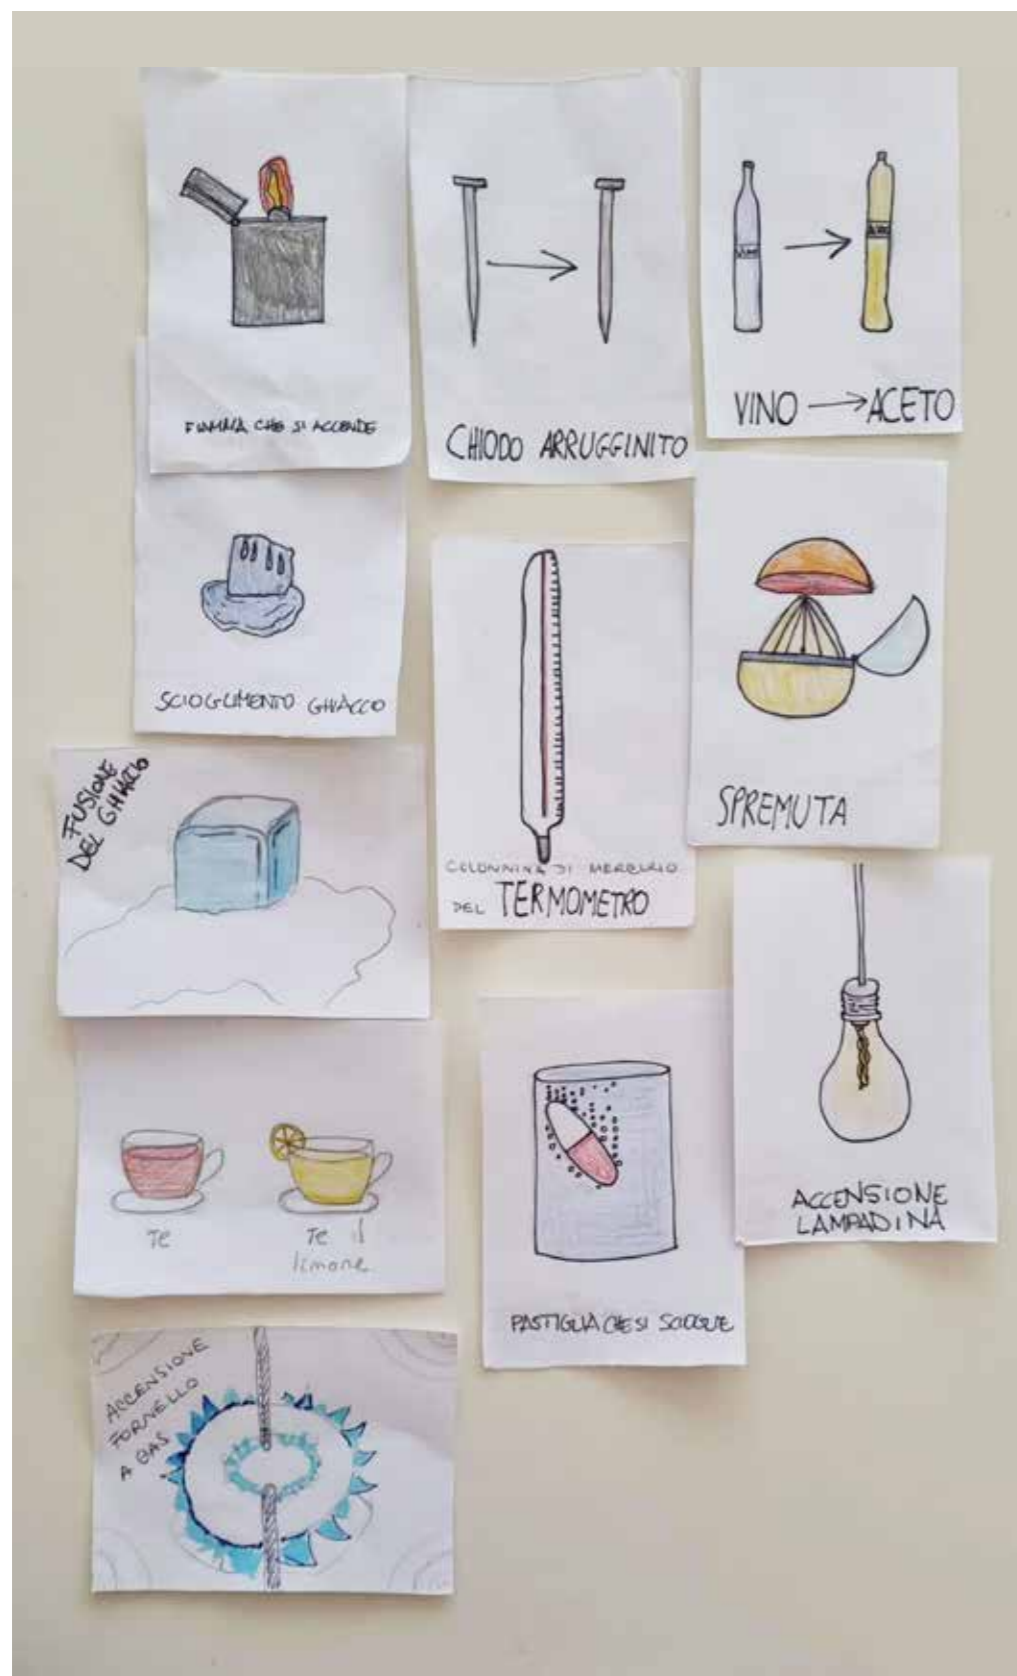 FIAMMA CHE SI ACCENDE
CHIODO ARRUGGINITO
VINO → ACETO
SCIOGLIMENTO GHIACCIO
COLONNINA DI MERCURIO
DEL TERMOMETRO
SPREMUTA
FUSIONE
DEL GHIACCIO
Te
Te il
limone
PASTIGLIA CHE SI SCIOGLIE
ACCENSIONE
LAMPADINA
ACCENSIONE
FORNELLO
A GAS